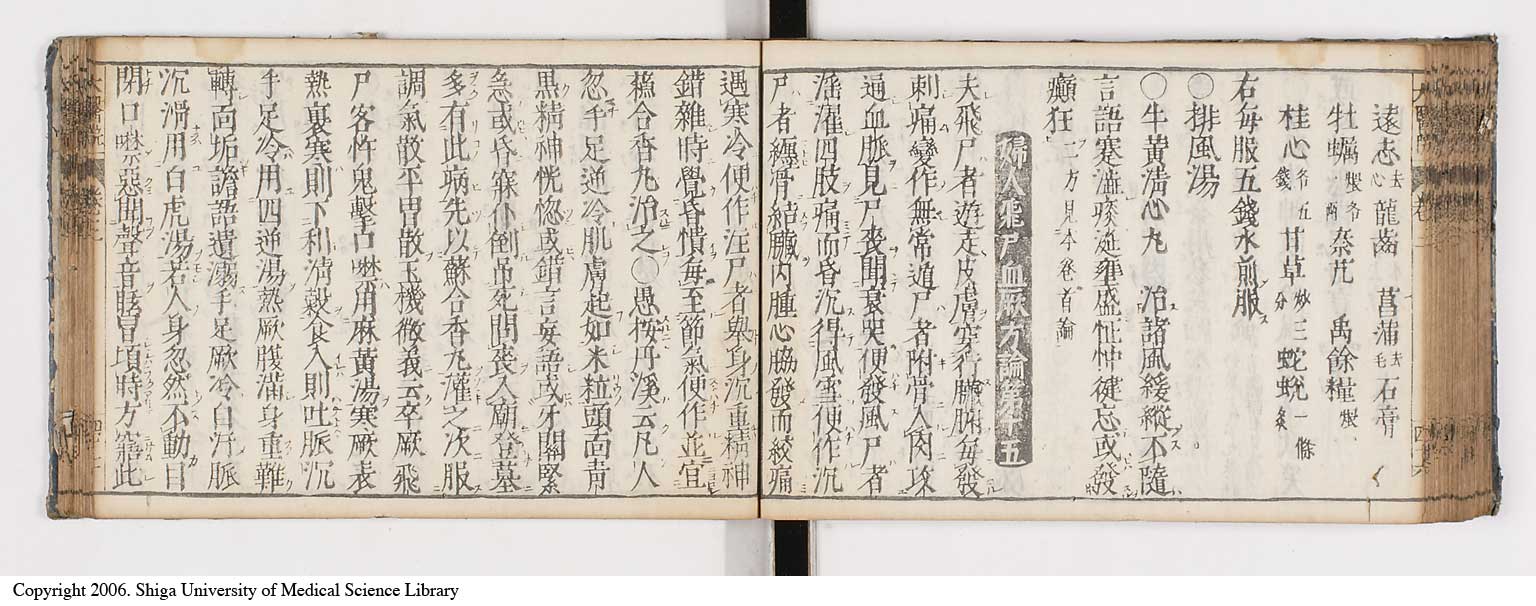 遠志去心龍齒　菖蒲去毛石膏
牡蠣煅各一兩秦艽　禹餘糧煅
桂心各五錢甘草炒三分蛇蛻一條炙
右每服五錢水煎服
○排風湯
○牛黃清心丸　治諸風緩縱不隨
言語蹇澁痰涎壅盛怔忡健忘或發
癲狂二方見本卷首論
婦人飛尸血厥方論第十五
夫飛尸者遊走皮膚穿行臟腑每發
刺痛變作無常遁尸者附骨入肉攻
通血脈見尸喪聞哀哭便發風尸者
滛濯四肢痛而昏沉得風雪便作沉
尸者纏骨結臟內腫心脇發而絞痛
遇寒冷便作注尸者舉身沉重精神
錯雜時覺昏憒每至節氣便作並宜
蘓合香丸治之○愚按丹溪云凡人
忽手足逆冷肌膚起如米粒頭面青
黑精神恍惚或錯言妄語或牙關緊
急或昏寐仆倒吊死問喪入廟登墓
多有此病先以蘇合香丸灌之次服
調氣散平胃散玉機微義云卒厥飛
尸客忤鬼擊口噤用麻黃湯寒厥表
熱裏寒則下利清穀食入則吐脈沉
手足冷用四逆湯熱厥腹滿身重難
轉面垢譫語遺溺手足厥冷自汗脈
沉滑用白虎湯若人身忽然不動目
閉口噤惡聞聲音眩冒項時方寤此
Copyright 2006. Shiga University of Medical Science Library